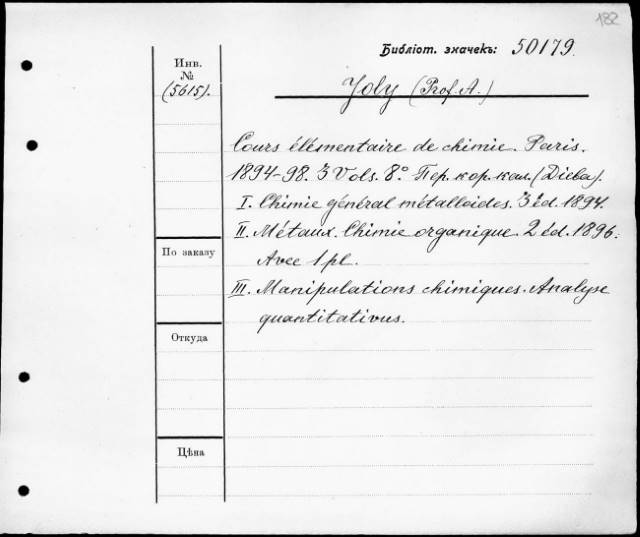 182
Библіот. значекъ: 50179.
Инв.
№
(5615).
Joly (Prof. A.)
Cours élémentaire de chimie. Paris.
1894-98. 3 Vols. 8º Пер. кор. кал. (Диева).
I. Chimie général métalloides. 3 éd. 1894.
II. Métaux. Chimie organique. 2 éd. 1896.
Avec 1 pl.
III. Manipulations chimiques. Analyse
quantitativus.
По заказу
Откуда
Цѣна